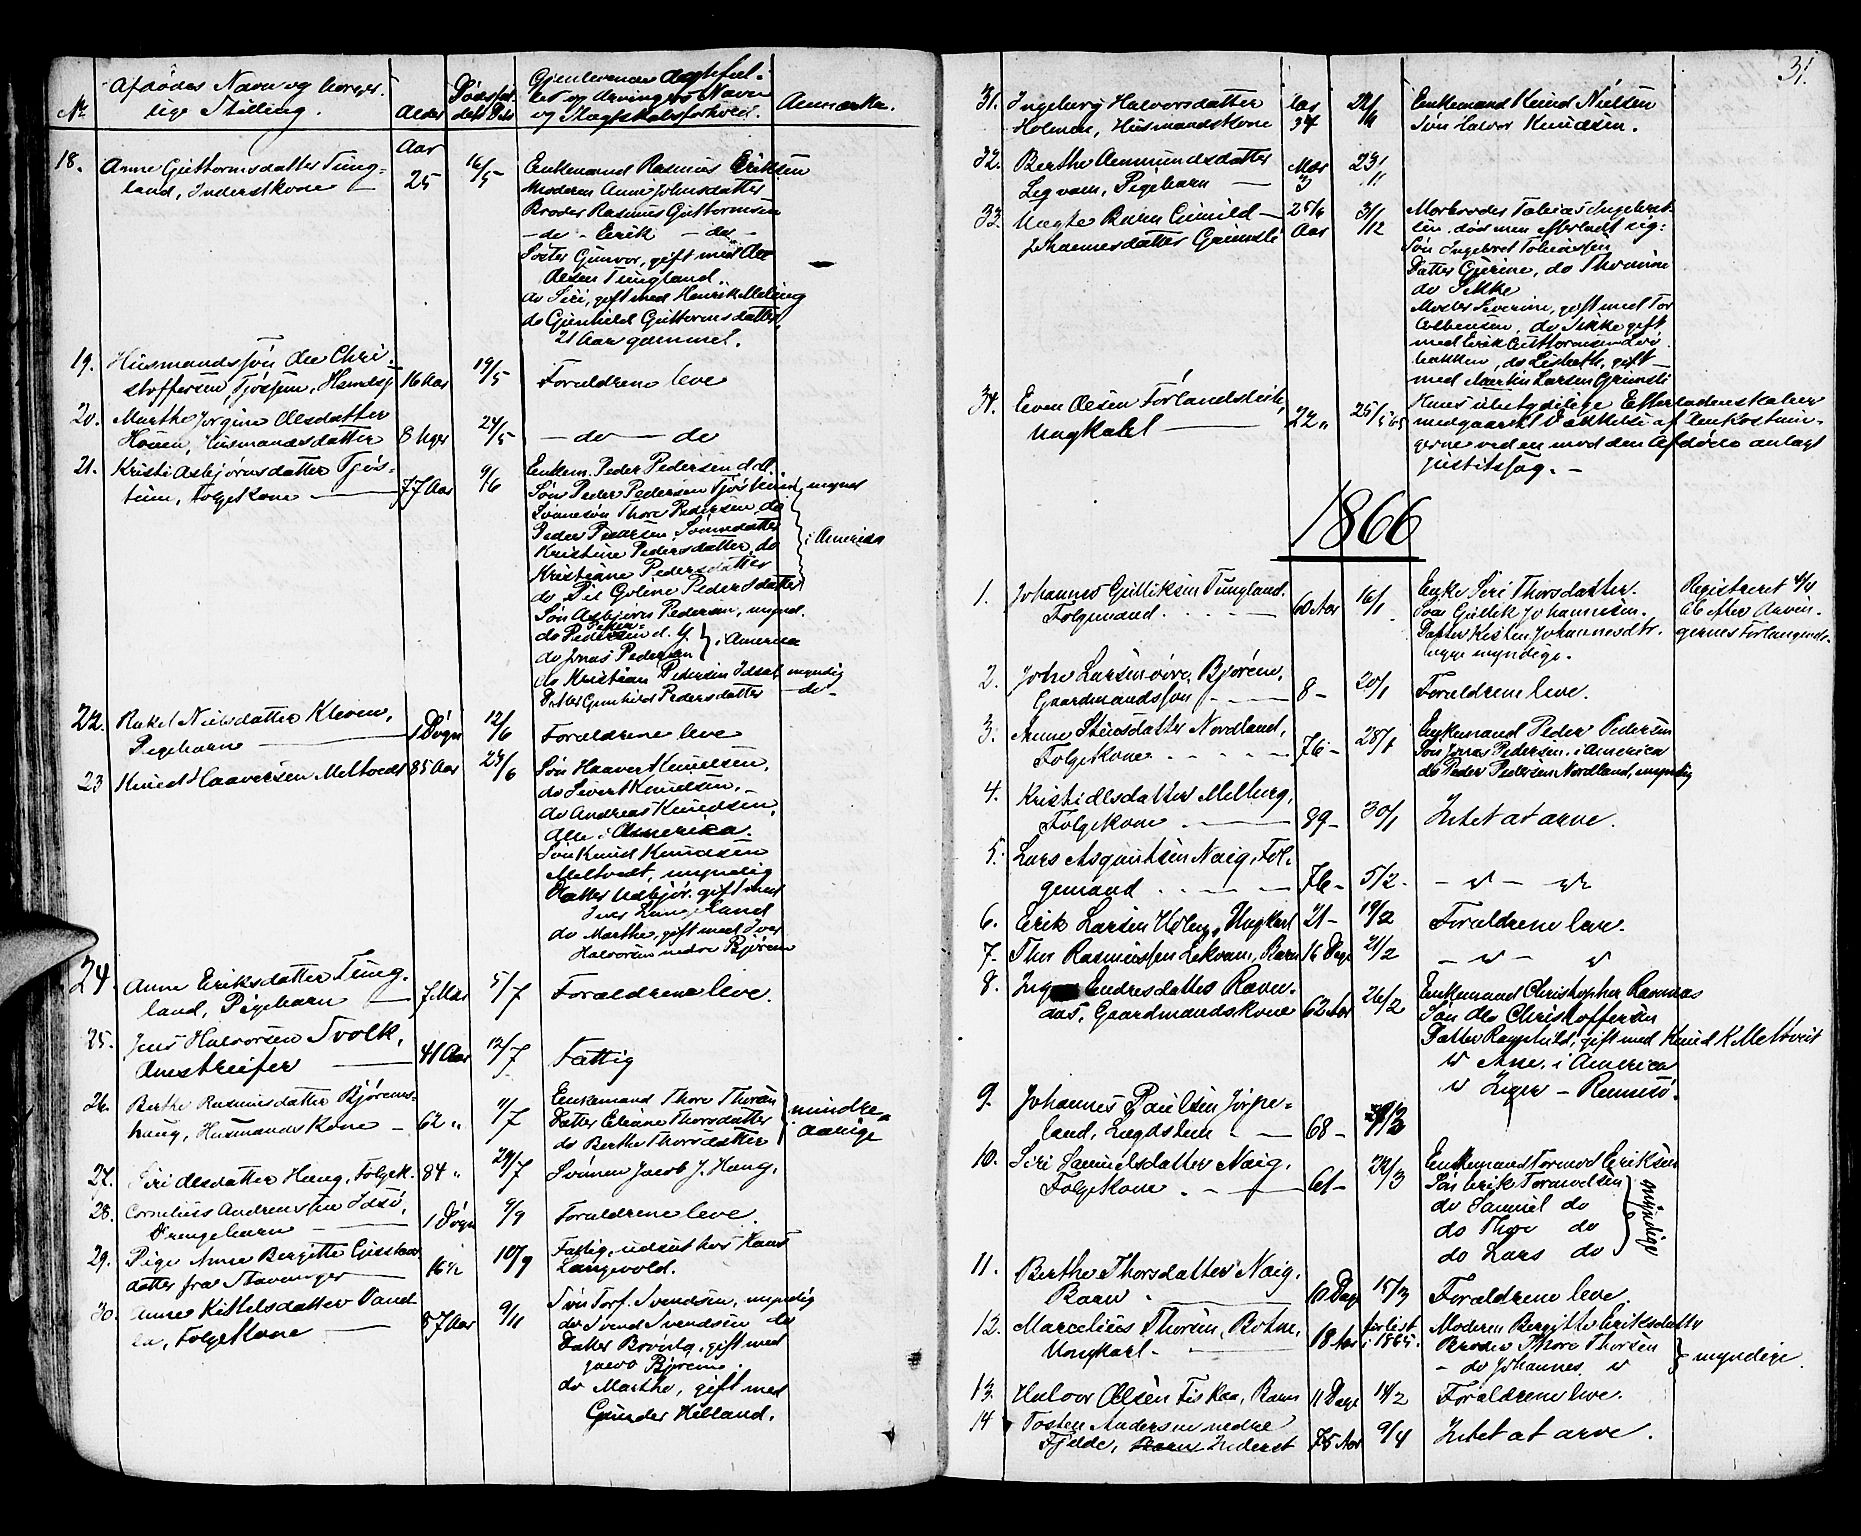 Nr
Afdødes Navn og borger-
lige Stilling.
Alder
Dødsfal-
dets Dato
Gjenlevende Ægtefæl-
les og Arvingers Navn
og Slægtskabsforhold.
Anmærkn.
18. Anne Guttormsdatter Tung-
land, Inderstkone — Aar 25 16/5 Enkemand Rasmus Eriksen
Moderen Anne Johnsdatter
Broder Rasmus Guttormsen
— do — Erik — do —
Søster Gunvor, gift med Ole
Olsen Tungland
do Siri, gift med Henrik Meling
do Gunhild Guttormsdatter,
21 Aar gammel.
19. Husmandssøn Ole Chri-
stoffersen Tjøstum, 16 Aar 19/5 Forældrene leve
20. Marthe Jorgine Olsdatter
Houen, Husmandsdatter 8 Uger 24/5 — do — do
21. Kristi Asbjørnsdatter Tjøs-
tum, Folgekone — 77 Aar 9/6 Enkem. Peder Pedersen d. æl.
Søn Peder Pedersen Tjøstum, mynd
Sønnesøn Thore Pedersen do
Peder Pedersen, Sønnedatter
Kristine Pedersdatter, do
Kristiane Pedersdatter
do Goline Pedersdatter
i America
Søn Asbjørn Pedersen, mynd.
do Peder Pedersen d. Y.
do Jonas Pedersen } i America
do Kristian Pedersen Idsal myndig
Datter Gunhild Pedersdatter — do —
22. Rakel Nielsdatter Kleven,
Pigebarn — 1 Døgn 12/6 Forældrene leve
23 Knud Haaversen Meltvedt 85 Aar 24/6 Søn Haaver Knudsen,
do Sivert Knudsen, —
do Andreas Knudsen,
Alle i Amerika.
Søn Knud Knudsen
Meltvedt, myndig
Datter Udbjør. gift med
Iver Langeland
do Marthe, gift med Iver
Halvorsen nedre Bjørem
24. Anne Eriksdatter Tung-
land, Pigebarn — 7 Mdr 5/7 Forældrene leve.
25. Jens Halvorsen Svolk,
Omstreifer — 41 Aar 12/7 Fattig
26. Berthe Rasmusdatter Bjørems-
haug, Husmandskone — 62 " 11/7 Enkemand Thore Thorsen
Datter Eliane Thorsdatter
do Berthe Thorsdatter } mindre-
aarige
27. Siri Olsdatter Haug, Folgek. 84 " 29/7 Svinnen Jacob J. Haug.
28. Cornelius Andreassen Idsø,
Drengebarn — 1 Døgn 9/9 Forældrene leve.
29. Pige Anne Bergitte Gustavs-
datter fra Stavanger — 16 1/2 10/9 Fattig, udsat hos Knud
Langevold.
30. Anne Kittelsdatter Vand-
la, Folgekone — 87 Aar 9/11 Søn Torf. Svendsen, myndig
do Svend Svendsen do
Datter gift med
Bjørem
do Marthe, gift med
Gunder Helland.
31
31. Ingeborg Halvorsdatter
Holmen, Husmandskone Aar 34 22/11 Enkemand Knud Nielsen
Søn Halvor Knudsen.
32. Berthe Aanmundsdatter
Legvam, Pigebarn — Mdr 3 23/11
33. Uægte Barn Gunild —
Johannesdatter Grimsli 25/6 Aar 31/12 Morbroder Tobias Ingebret-
sen død men efterladt sig:
Søn Ingebret Tobiassen
Datter Gurine, do Thomine
do Sikke
Moster Severine, gift med Tor
do Sikke gift
med Erik Guttormsen
bakken, do Lisbeth, gift —
med Martin Larsen Grimsli
34. Even Olsen Førlandsli,
Ungkarl — 22 " 25/5 65 Hans ubetydelige Efterladenskaber
medgaaet til Dækkelse af Omkostnin-
gerne ved en mod den Afdøde anlagt
Justitssag. —
1866
1. Johannes Gulliksen Tungland.
Folgemand. . . . 60 Aar 16/1 Enke Siri Thorsdatter.
Søn Gullek Johannesen.
Datter Kisten Johannesdtr.
begge myndige. Registreret 4/4
66 efter Arvin-
gernes Forlangende.
2. John Larsen øvre Bjørem,
Gaardmandssøn — 8 — 20/1 Forældrene leve.
3. Anne Stensdatter Nordland,
Folgekone . . . . 76 — 28/1 Enkemand Peder Pedersen
Søn Jonas Pedersen i America
do Peder Pedersen Nordland, myndig
4. Kristi Olsdatter Melberg,
Folgekone . — 89 — 30/1 Intet at arve.
5. Lars Asgautsen Naig, Fol-
gemand . — . — 76 — 5/2 — " — "
6. Erik Larsen Ungkarl 21 — 19/2 Forældrene leve.
7. Thor Rasmussen Lekvam, Barn 16 Dage 21/2 — " — "
8. Endresdatter Ravn-
daas, Gaardmandskone 62 Aar 26/2 Enkemand Christopher Rasmus
Søn Ole Christoffersen
Datter Ragnhild, gift med Knud K Meltveit
" Ane, i America
" Inger — Remsø.
9. Johannes Paulsen Jørpe-
land, Lægdslem — 68 — /3
10. Siri Samuelsdatter Naig,
Folgekone . — 61 — 22/3 Enkemand Tormod Eriksen
Søn Erik Tormodsen
do Samuel do
do Thor do
do Lars do } myndige
11. Berthe Thorsdatter Naig.
Barn . — 10 Dage 15/3 Forældrene leve.
12. Marcelius Thorsen, Botne,
Ungkarl. — 18 Aar forlist
i 1865. Moderen Bergitte Eriksdatter
Broder Thore Thorsen
— do Johannes " } myndige.
13. Halvor Olsen Fiskaa, Barn 11 Dage 14/2 Forældrene leve.
14 Tosten Andersen nedre
Fjelde, Inderst 75 Aar 9/4 Intet at arve.